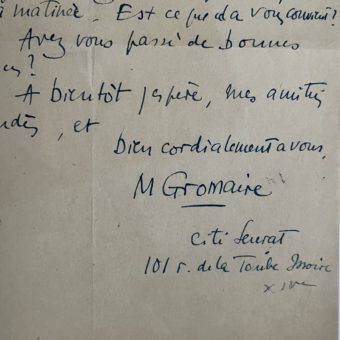 matinée. Est ce que cela vous convient?
Avez vous passé de bonnes
es?
A bientôt j'espère, mes amitiés
, et
bien cordialement a vous,
M Gromaire
Citi Seurat
101 r. de la Tombe Issoire
XIVe